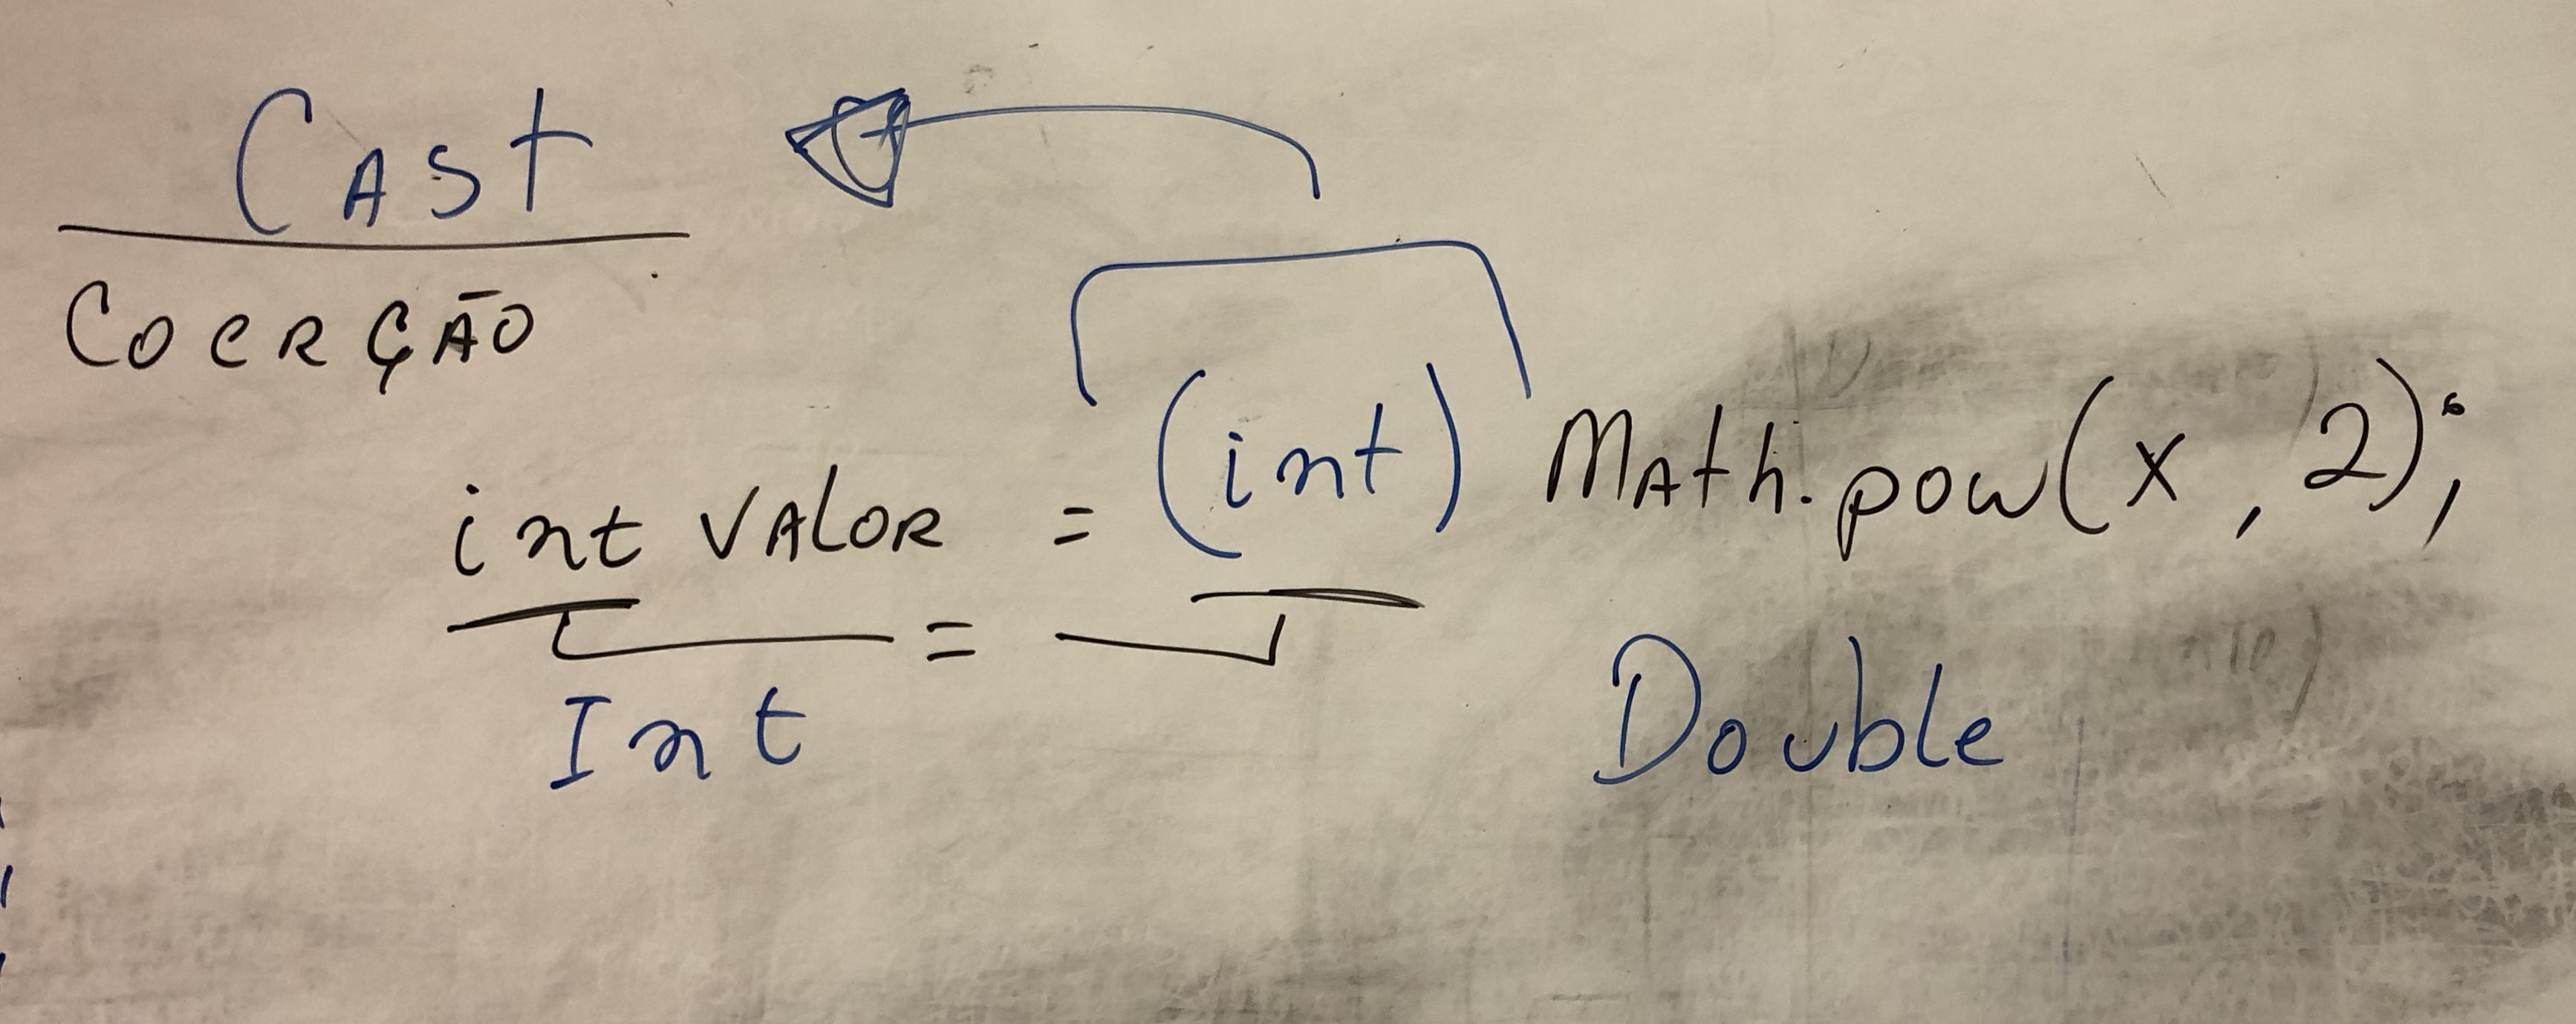 Cast
Coerção
int valor = (int) Math.pow(x, 2);
=
Int Double